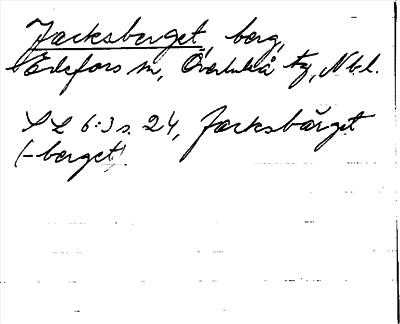 Jacksberget, berg,
Edefors sn, Överluleå tg, Nbl.
SL 6:3 s. 24, Jacksbärget
(-berget)